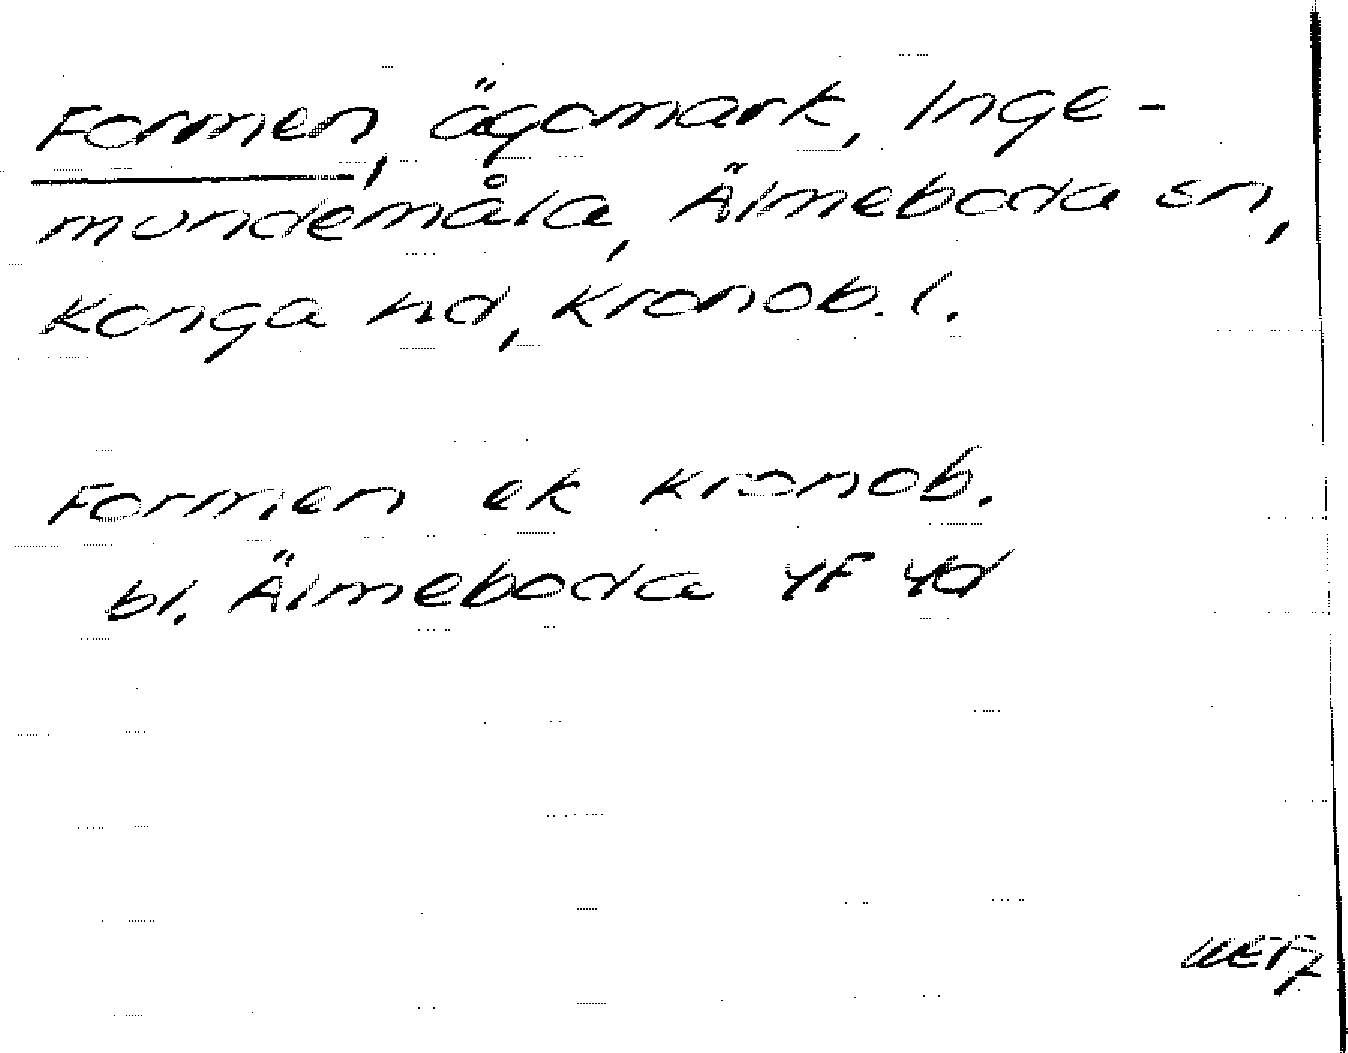 Formen, ägomark, Inge-
mundemåla, Älmeboda sn,
Konga hd, Kronob. l.
Formen ek Kronob.
bl. Älmeboda 4F 4d